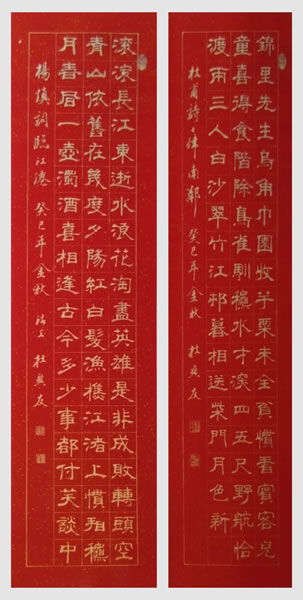 錦里先生烏角巾園收芋栗未全貧慣看賓客兒
童喜得食階除鳥雀馴穐水才深四五尺野航恰
渡兩三人白沙翠竹江邨暮相送柴門月色新
杜甫詩七律南鄰 癸巳年金秋 杜友
滾滾長江東逝水浪花淘盡英雄是非成敗轉頭空
青山依舊在幾度夕陽紅白髮漁樵江渚上慣看穐
月春風一壺濁酒喜相逢古今多少事都付笑談中
楊慎詞臨江僊 癸巳年金秋 杜友